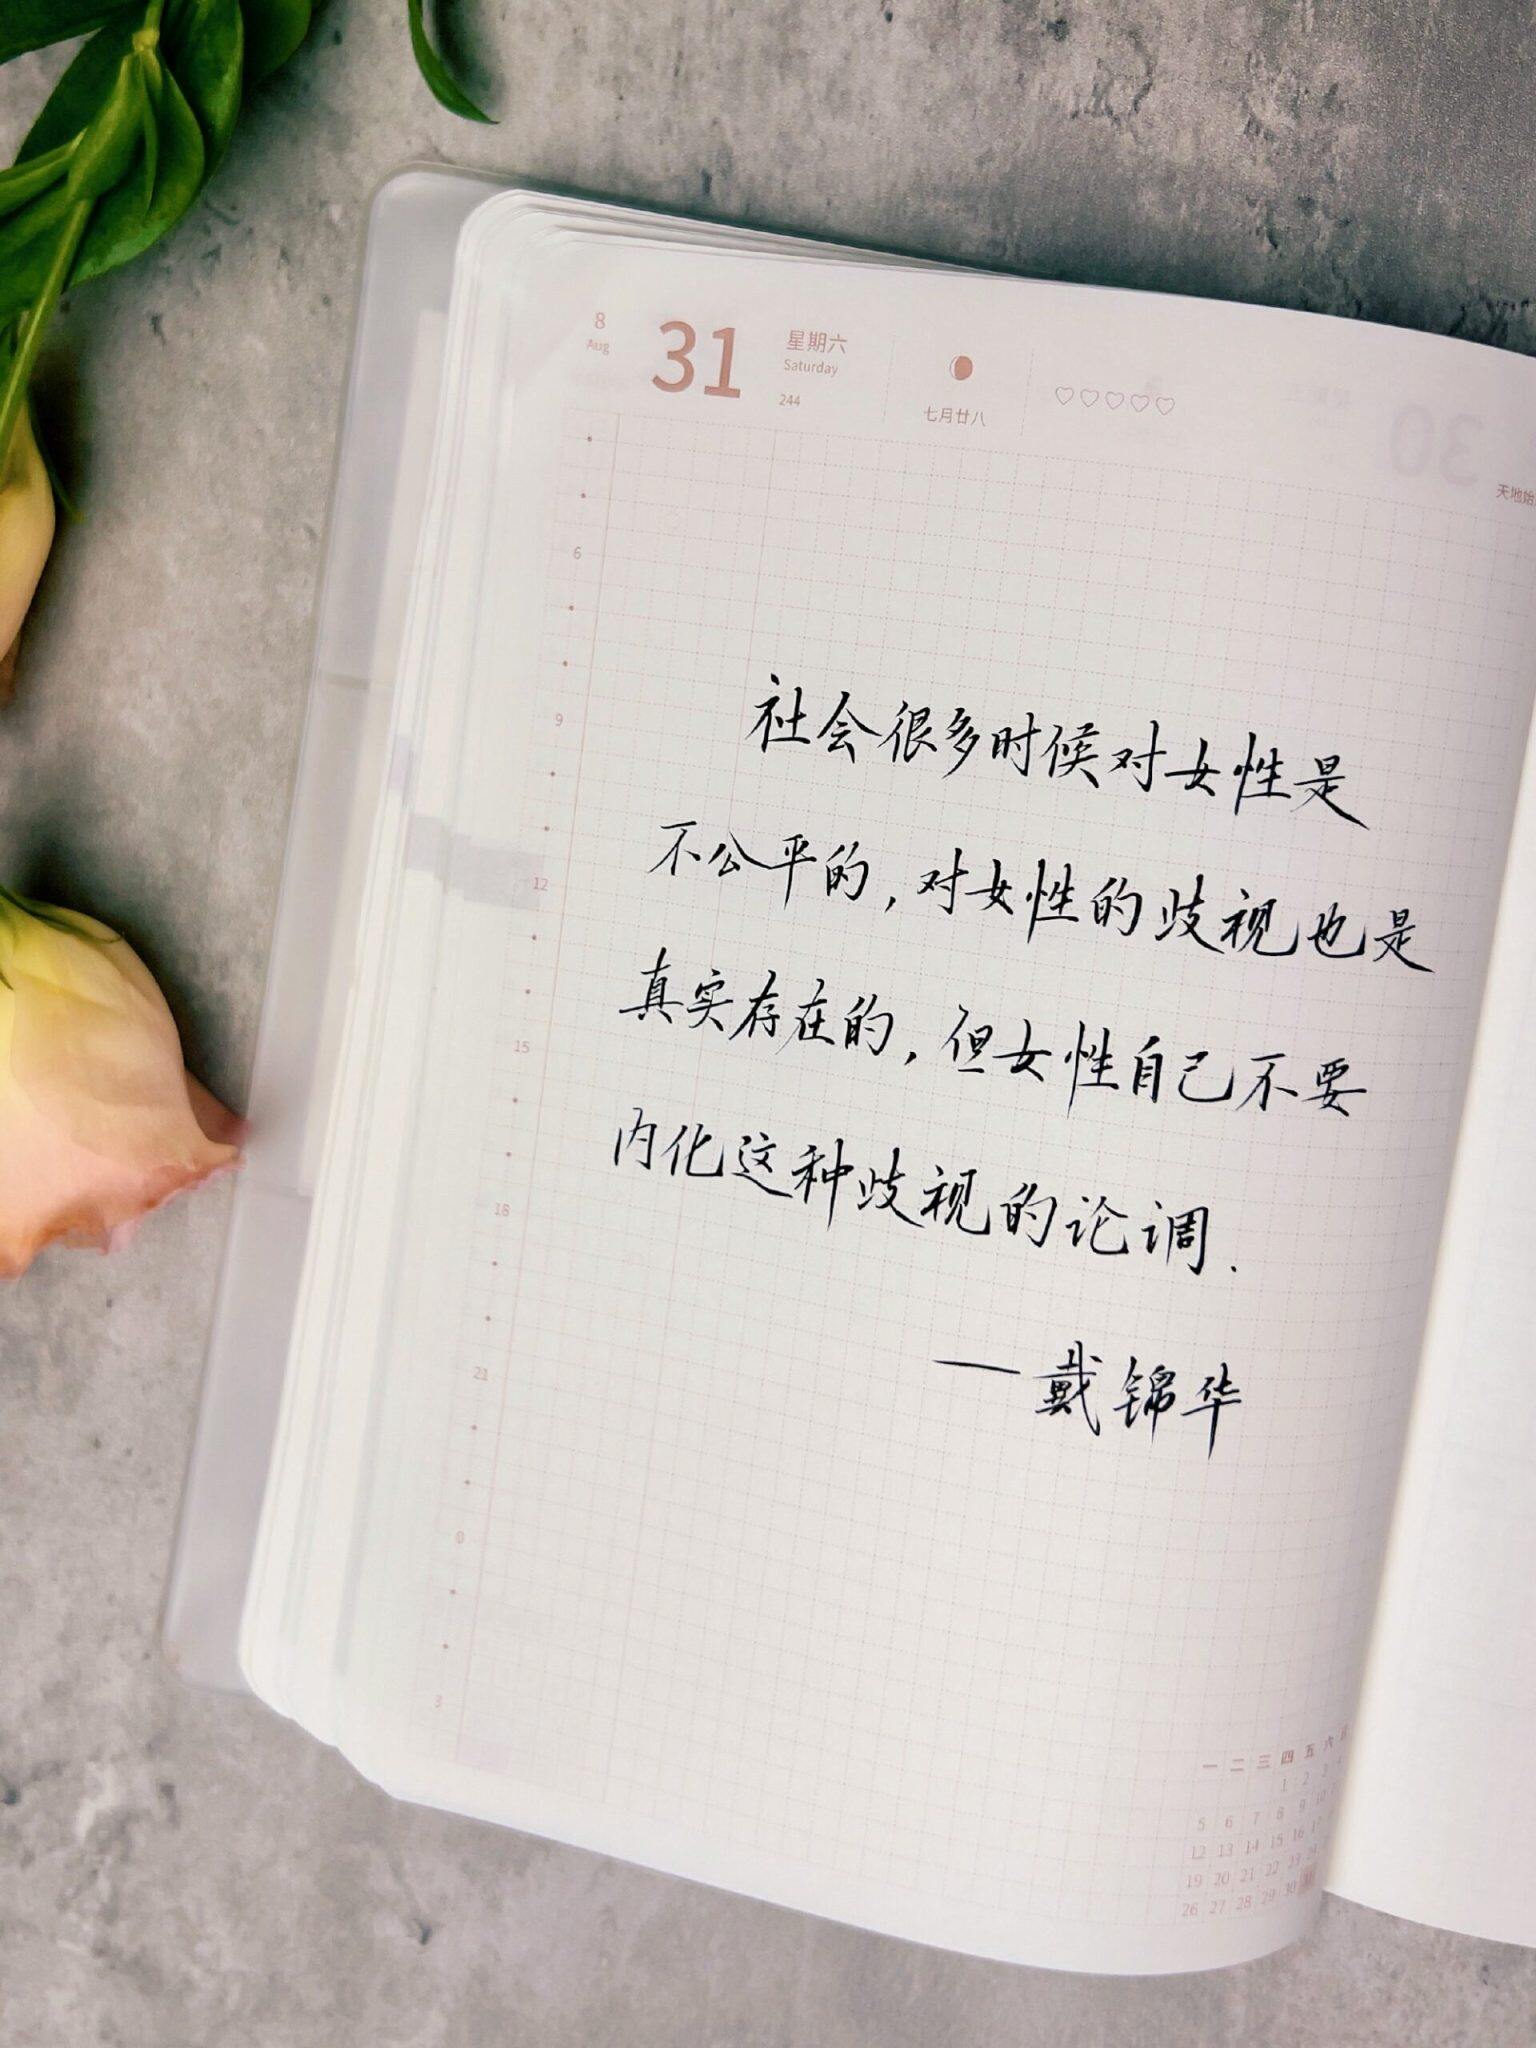 8
Aug
31
星期六
Saturday
244
七月廿八
30
天地始
6
9
12
15
18
21
0
3
社会很多时候对女性是
不公平的,对女性的歧视也是
真实存在的,但女性自己不要
内化这种歧视的论调.
—戴锦华
一 二 三 四 五 六
1 2 3
5 6 7 8 9 10
12 13 14 15 16 17
19 20 21 22 23 24
26 27 28 29 30 31